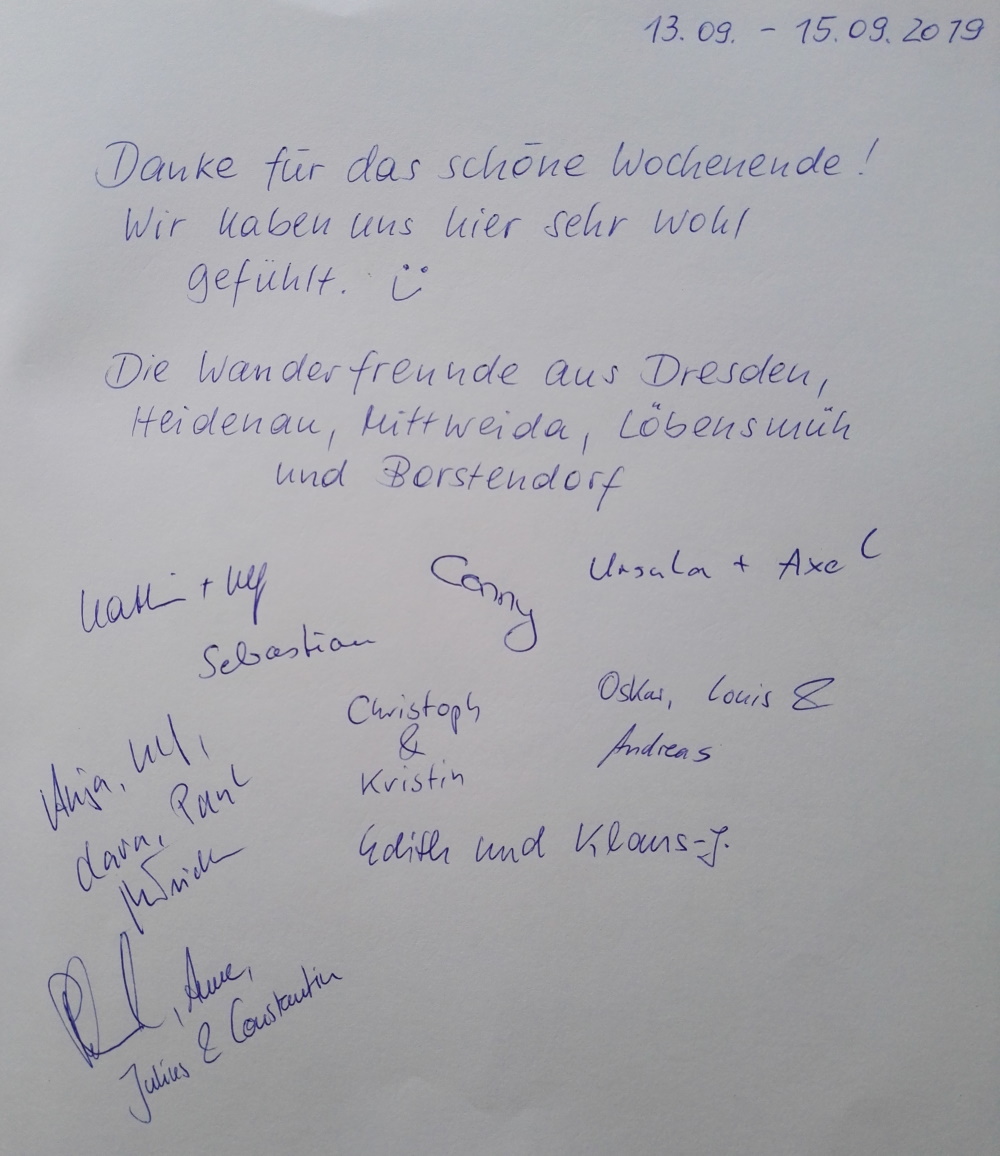 13.09. - 15.09.2019
Danke für das schöne Wochenende!
Wir haben uns hier sehr wohl
gefühlt. ü
Die Wanderfreunde aus Dresden,
Heidenau, Mittweida, Löbensmüh
und Borstendorf
Kathi + Ulf
Conny
Ursula + Axel
Sebastian
Christoph
&
Kristin
Oskar, Louis &
Andreas
Anja, Ulf,
Lara, Paul
Edith und Klaus-J.
, Anne,
Julius & Constantin